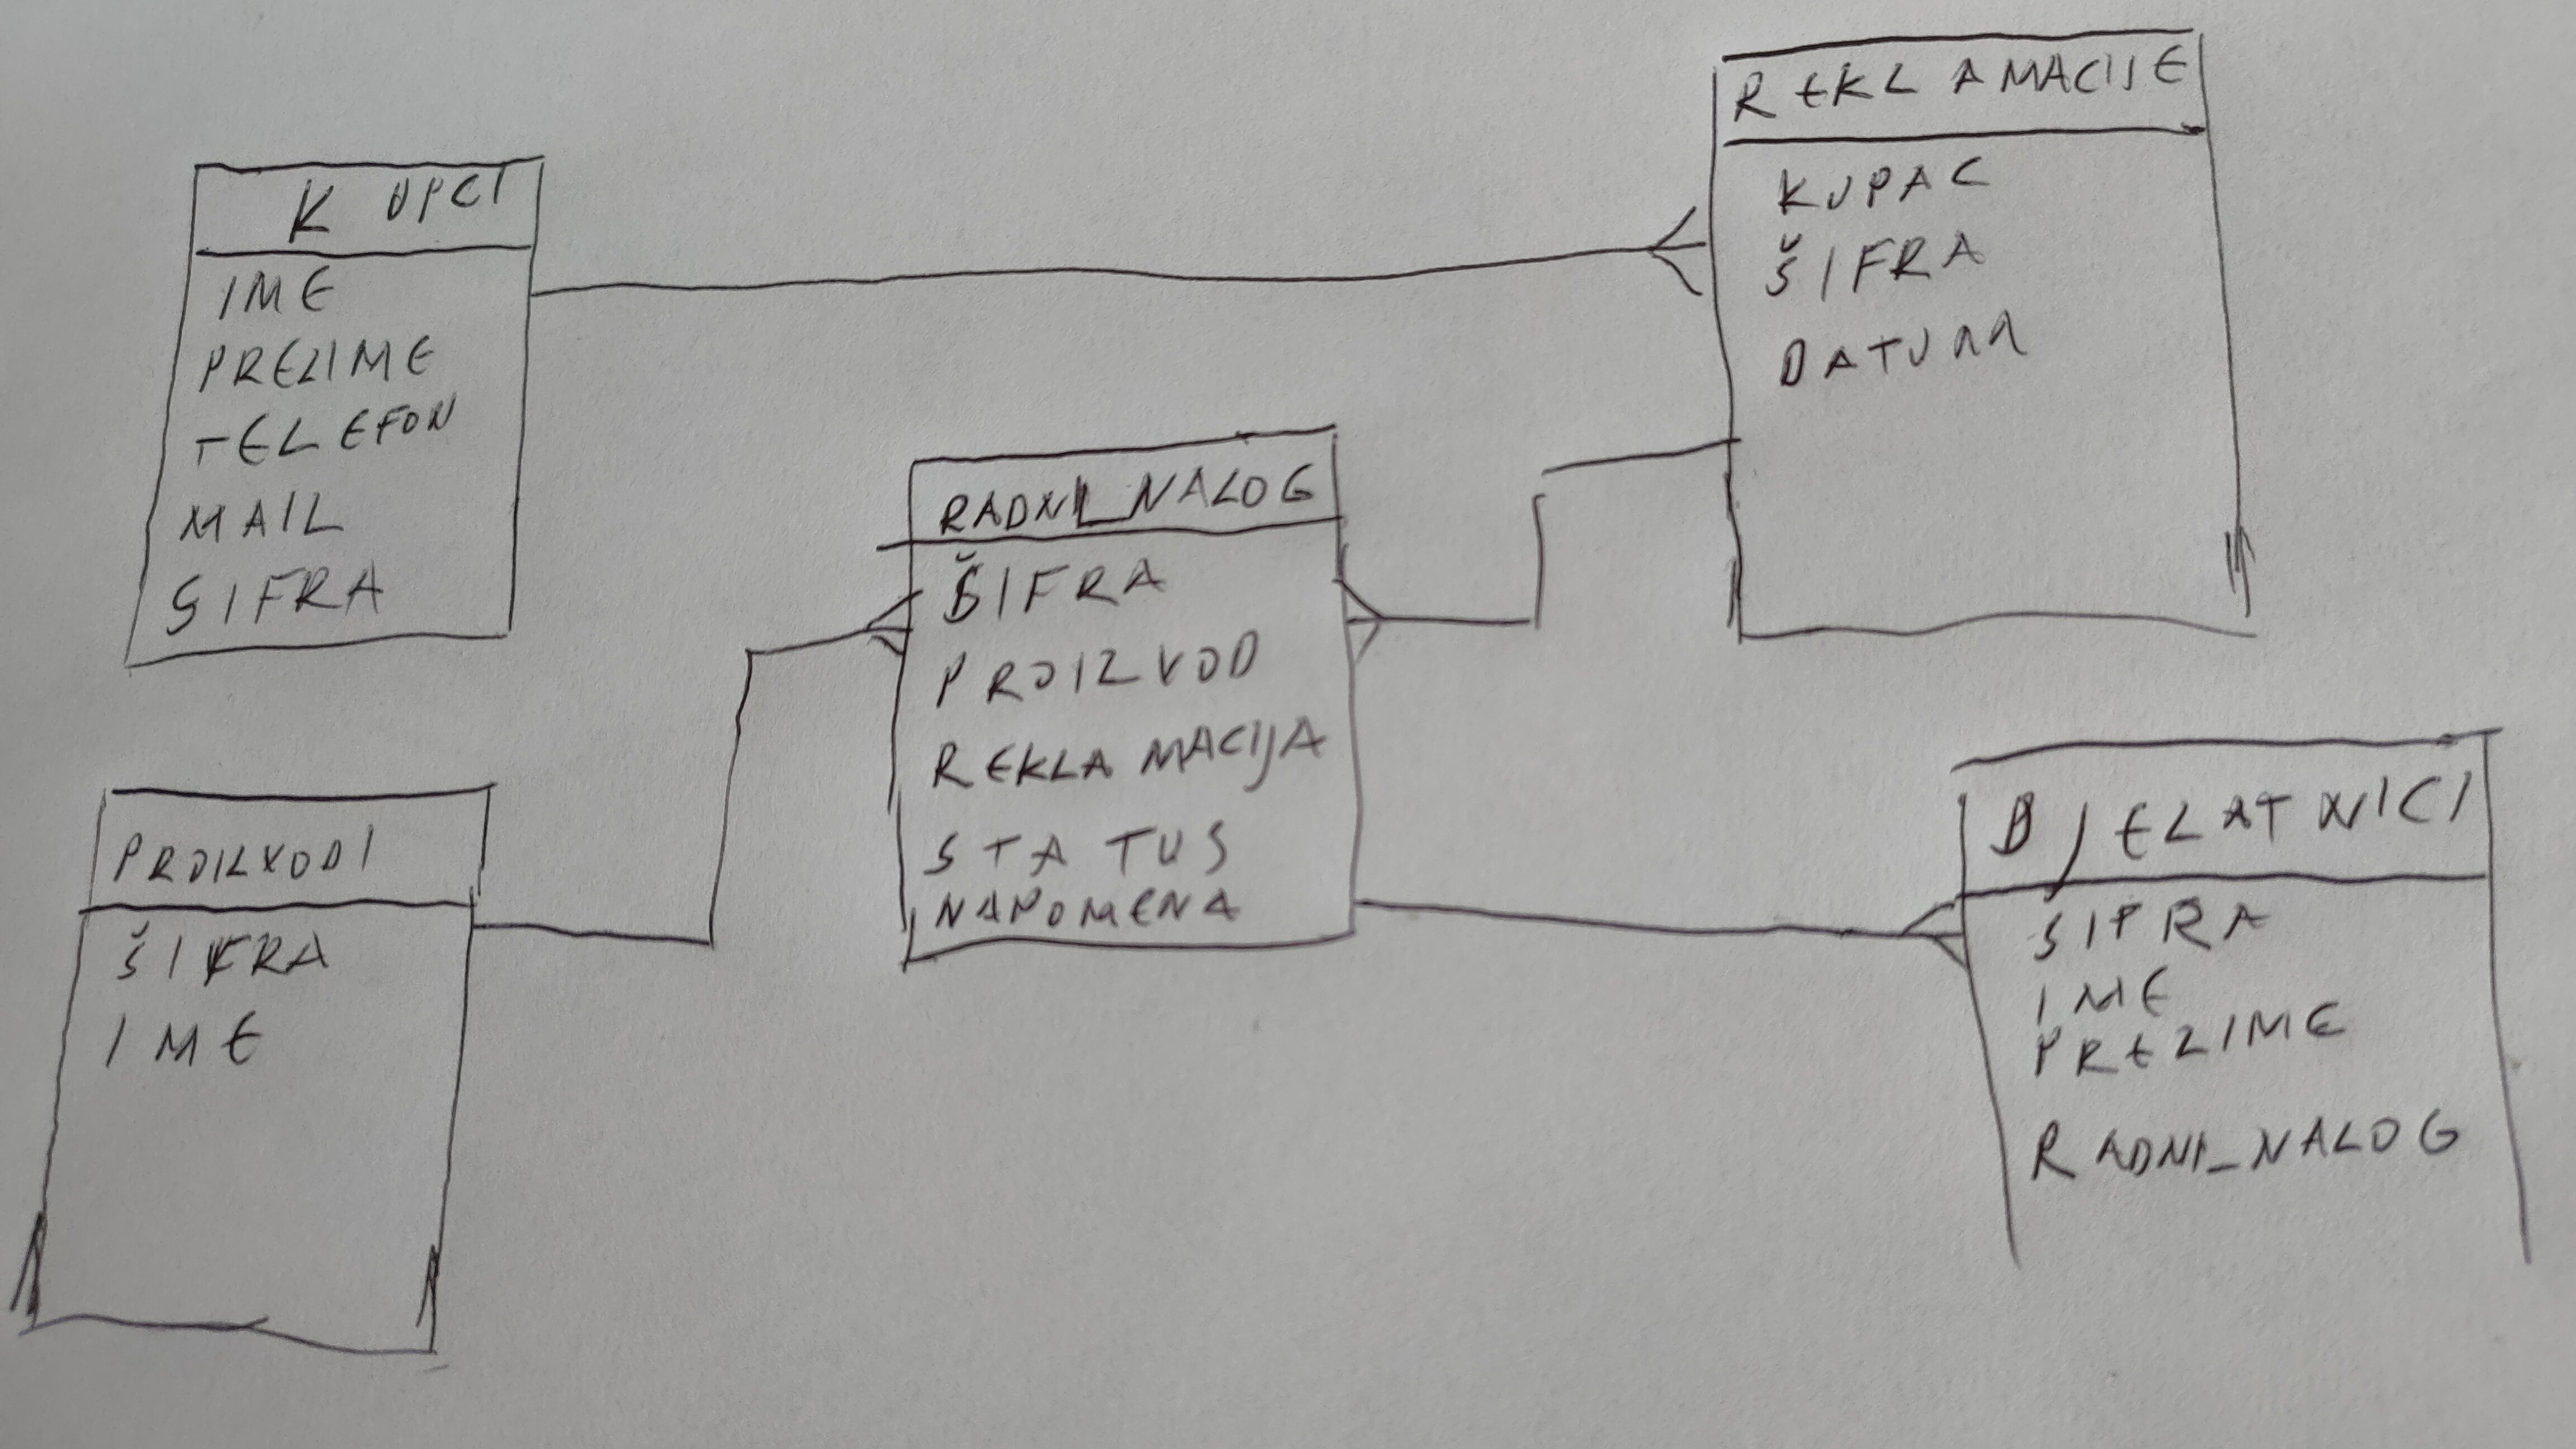 KUPCI
IME
PREZIME
TELEFON
MAIL
SIFRA
REKLAMACIJE
KUPAC
ŠIFRA
DATUM
RADNI_NALOG
ŠIFRA
PROIZVOD
REKLAMACIJA
STATUS
NAPOMENA
PROIZVODI
ŠIFRA
IME
DJELATNICI
SIFRA
IME
PREZIME
RADNI_NALOG